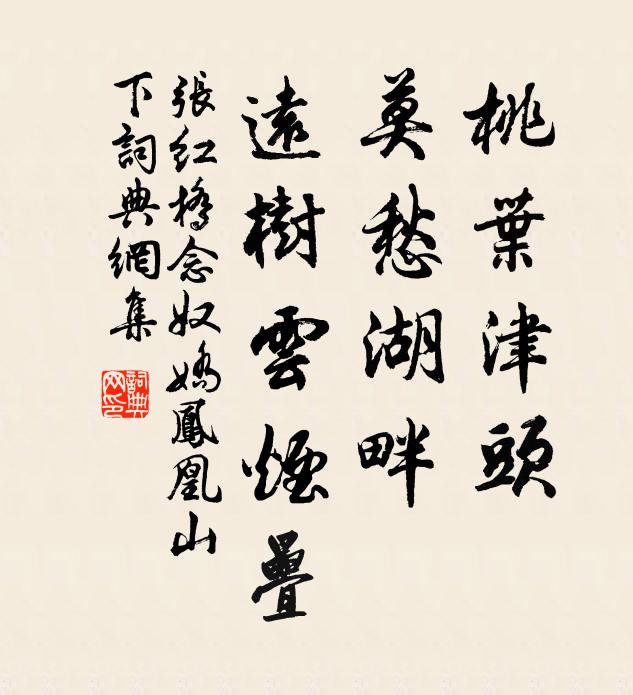 桃葉津頭
莫愁湖畔
遠樹雲煙疊
張紅橋念奴嬌鳳凰山
下詞典網集
詞典网印